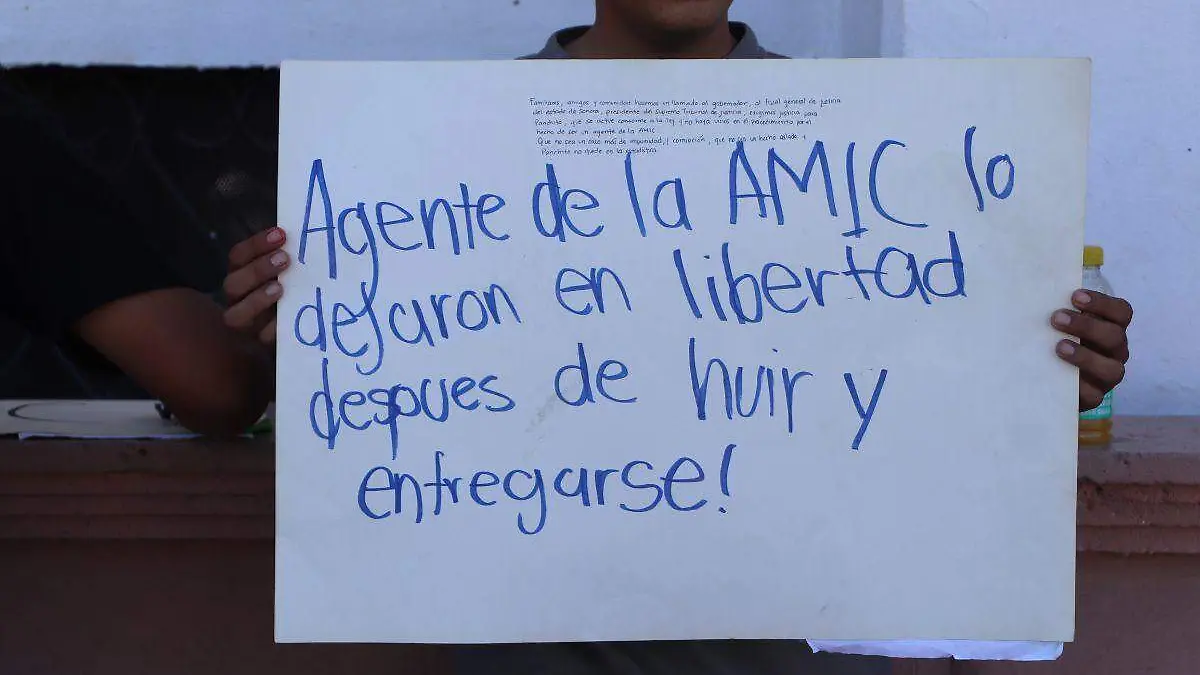 Familias, amigos y comunidad hacemos un llamado al gobernador, al fiscal general de justicia
del estado de Sonora, presidente del supremo tribunal de justicia, exigimos justicia para
Panchito, que se actue conforme a la ley y no haya vicios en el procedimiento, por el
hecho de ser un agente de la AMIC
Que no sea un caso más de impunidad, y corrupción, que no sea un hecho aislado y
Panchito no quede en la estadística
Agente de la AMIC lo
dejaron en libertad
despues de huir y
entregarse!